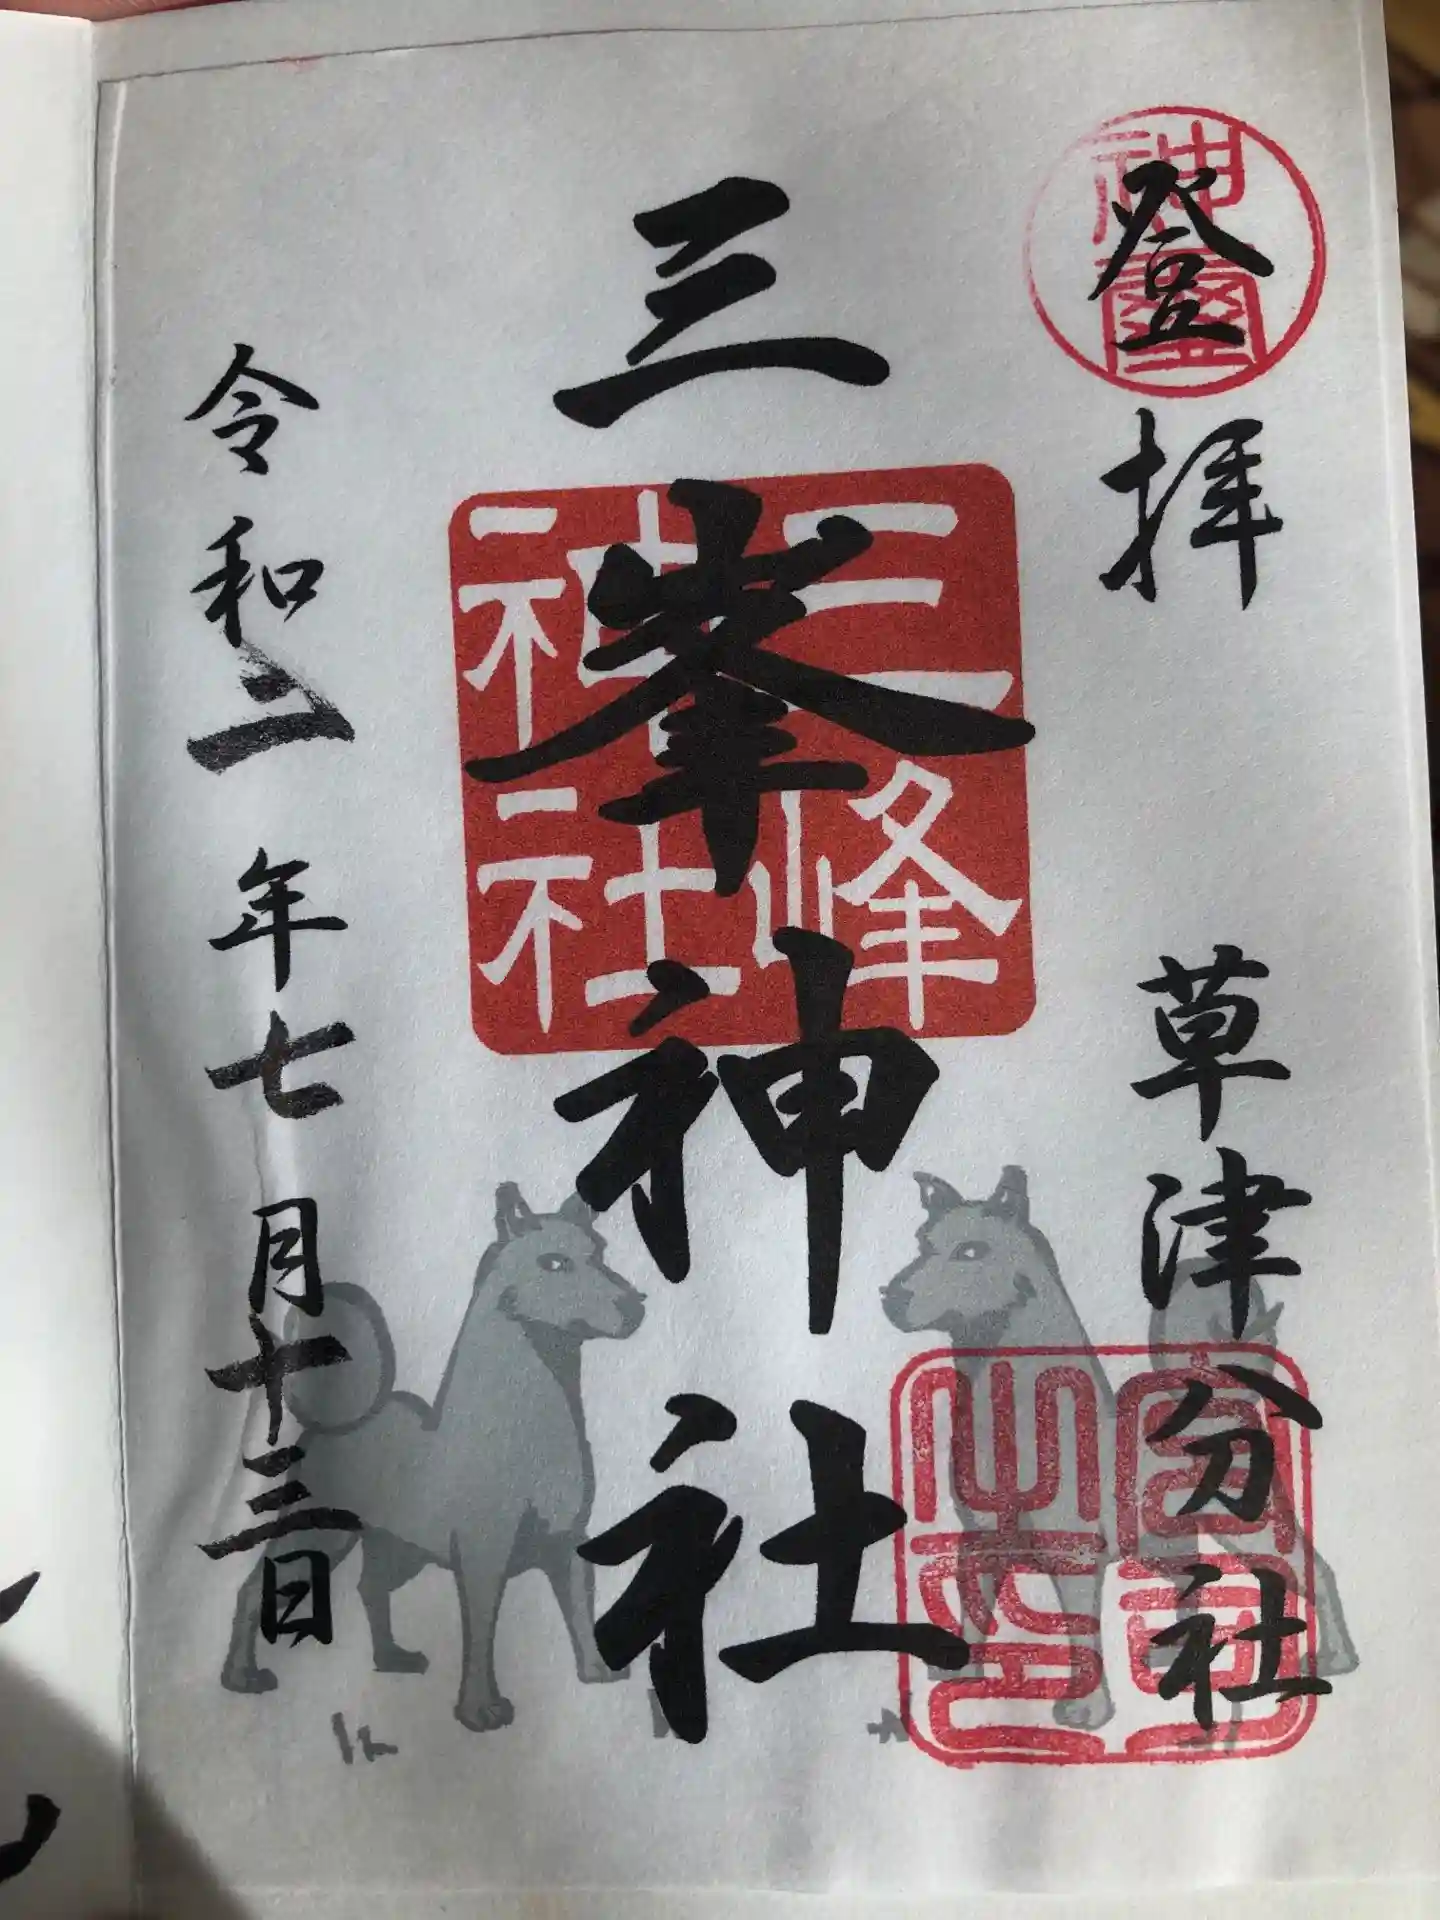 登拝
草津分社
三峯神社
令和二年七月十三日
三峰
神社
神璽
宮司
之印